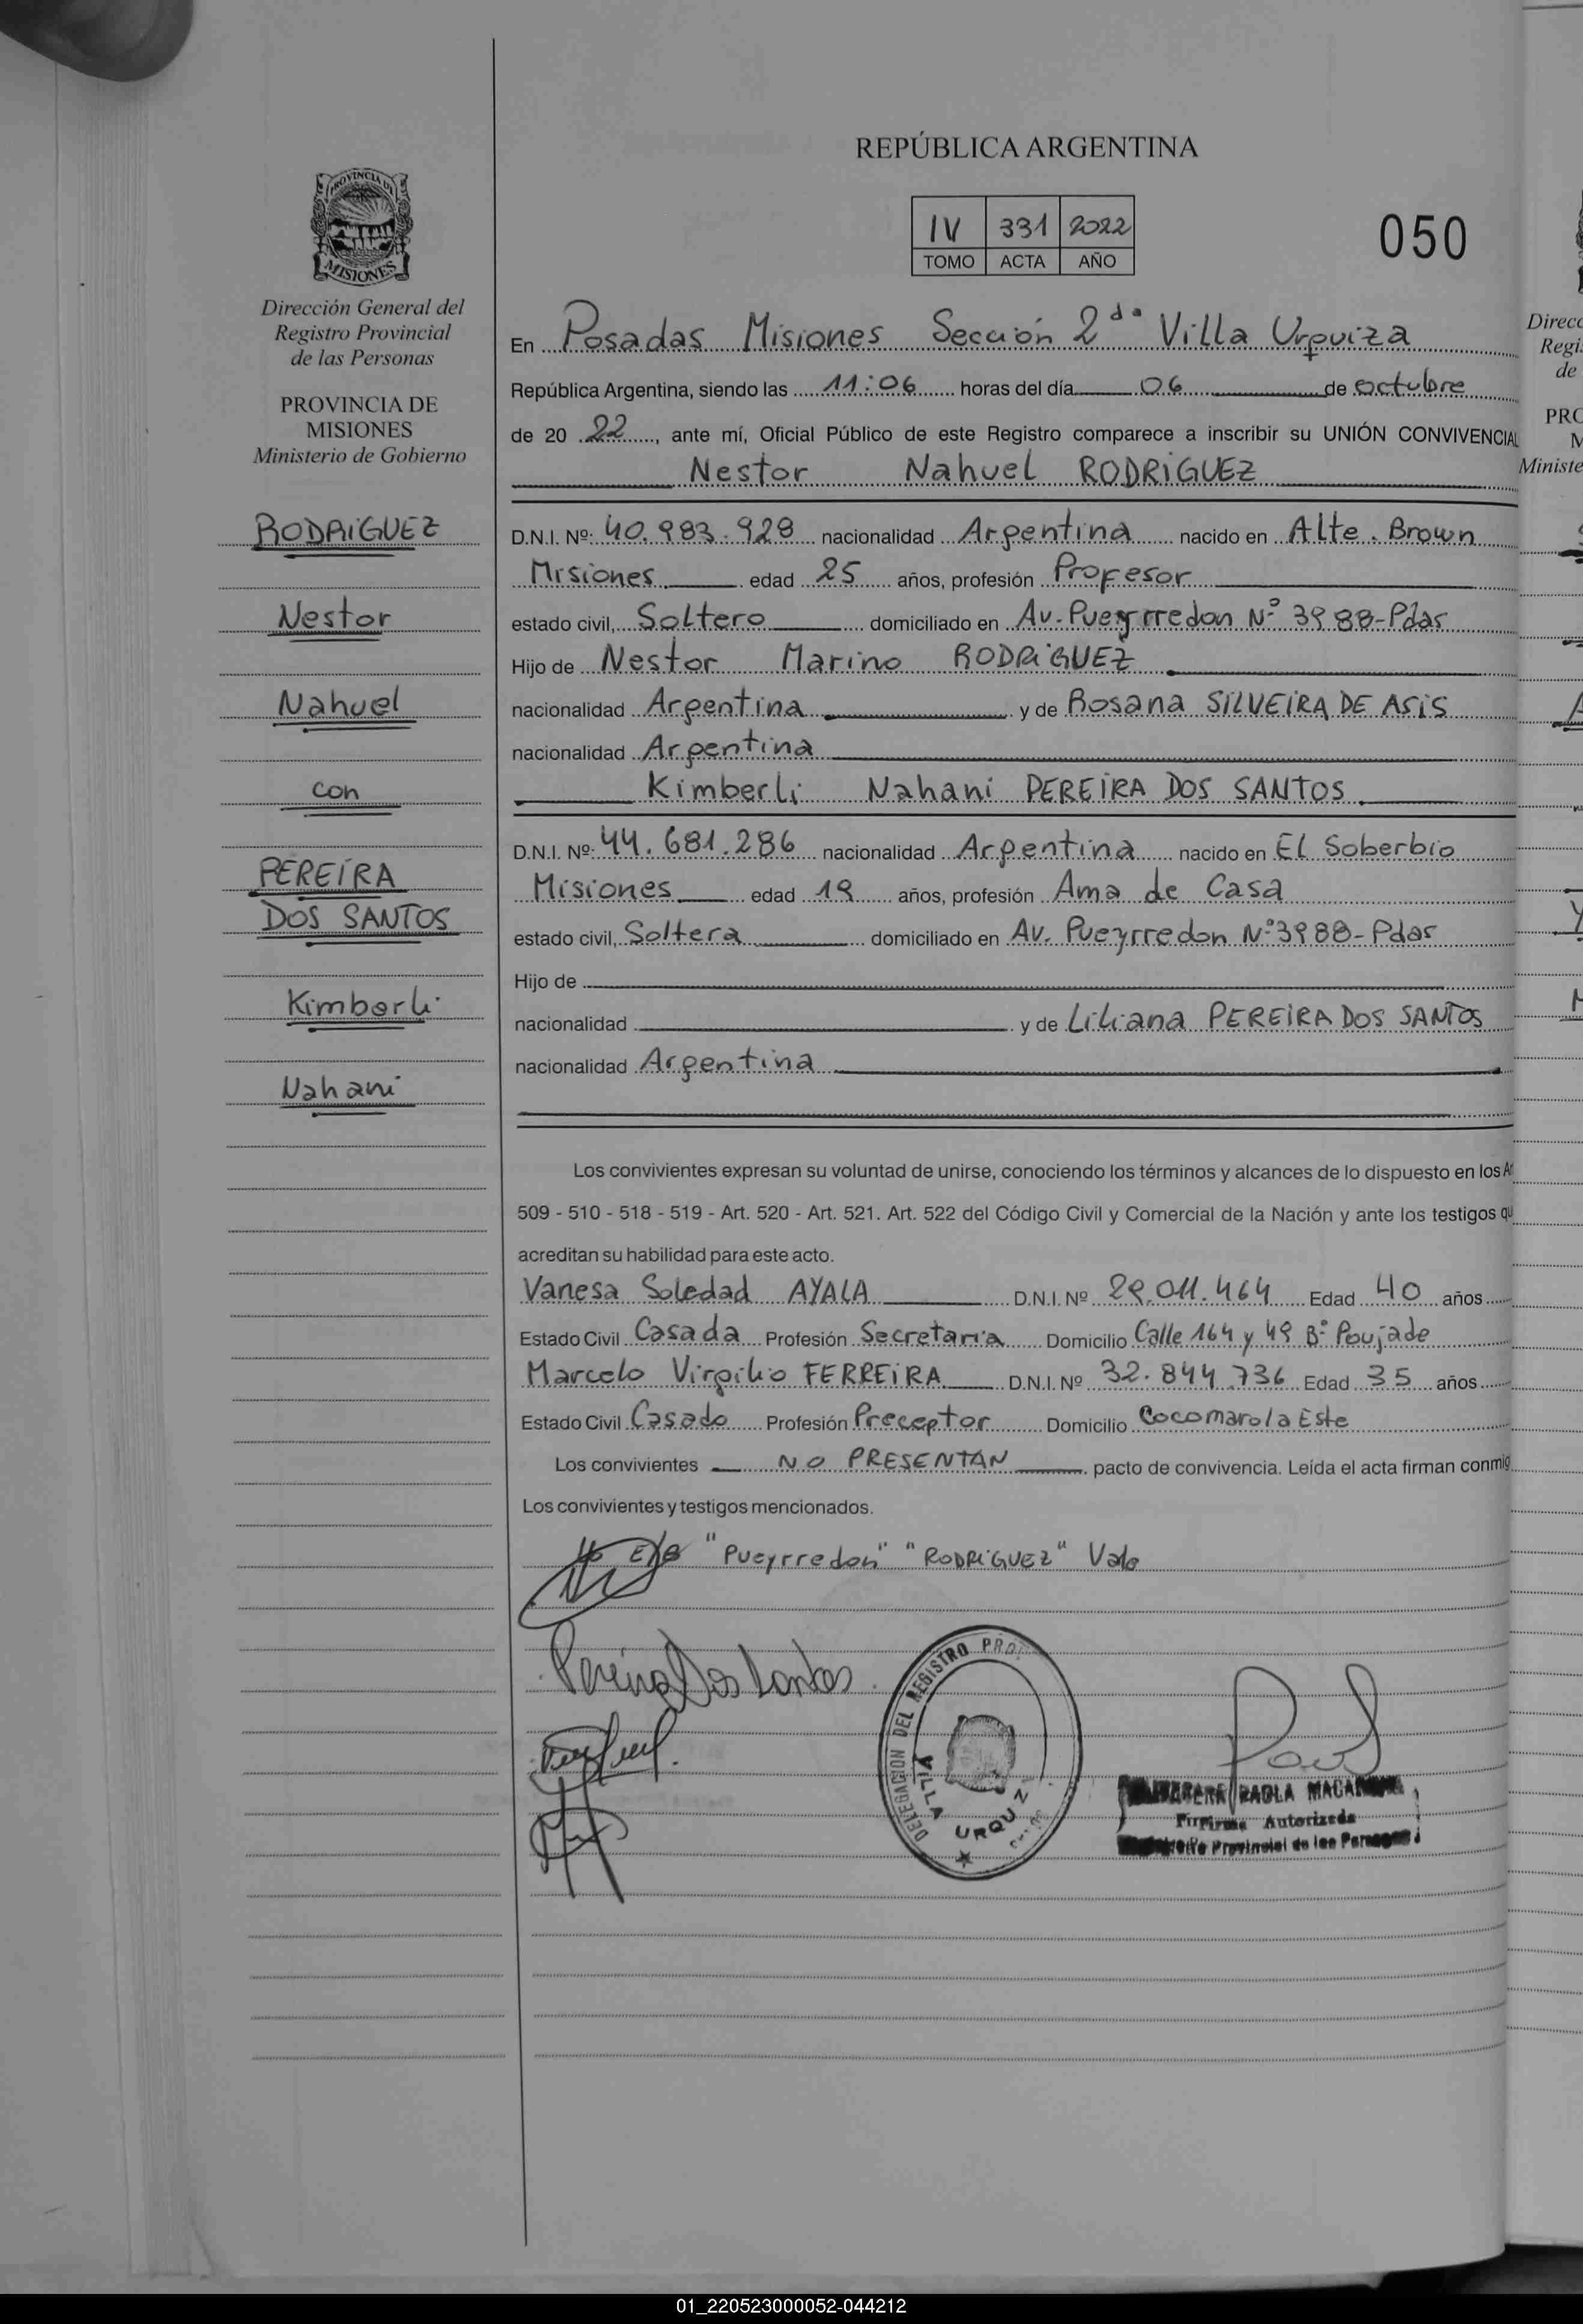 REPÚBLICA ARGENTINA
IV 331 2022
TOMO ACTA AÑO
050
PROVINCIA DE
MISIONES
Dirección General del
Registro Provincial
de las Personas
PROVINCIA DE
MISIONES
Ministerio de Gobierno
RODRIGUEZ
Nestor
Nahuel
con
PEREIRA
DOS SANTOS
Kimberli
Nahani
En Posadas Misiones Sección 2da Villa Urquiza
República Argentina, siendo las 11:06 horas del día 06 de octubre
de 20 22, ante mí, Oficial Público de este Registro comparece a inscribir su UNIÓN CONVIVENCIAL
Nestor Nahuel RODRIGUEZ
D.N.I. Nº: 40.983.928 nacionalidad Argentina nacido en Alte. Brown
Misiones edad 25 años, profesión Profesor
estado civil, Soltero domiciliado en Av. Pueyrredon Nº 3988-Pdas
Hijo de Nestor Marino RODRIGUEZ
nacionalidad Argentina y de Rosana SILVEIRA DE ASIS
nacionalidad Argentina
Kimberli Nahani PEREIRA DOS SANTOS
D.N.I. Nº: 44.681.286 nacionalidad Argentina nacido en El Soberbio
Misiones edad 19 años, profesión Ama de Casa
estado civil, Soltera domiciliado en Av. Pueyrredon Nº 3988-Pdas
Hijo de
nacionalidad y de Liliana PEREIRA DOS SANTOS
nacionalidad Argentina
Los convivientes expresan su voluntad de unirse, conociendo los términos y alcances de lo dispuesto en los
509 - 510 - 518 - 519 - Art. 520 - Art. 521. Art. 522 del Código Civil y Comercial de la Nación y ante los testigos
acreditan su habilidad para este acto.
Vanesa Soledad AYALA D.N.I. Nº 29.011.464 Edad 40 años
Estado Civil Casada Profesión Secretaria Domicilio Calle 164 y 49 Bº Poujade
Marcelo Virgilio FERREIRA D.N.I. Nº 32.844.736 Edad 35 años
Estado Civil Casado Profesión Preceptor Domicilio Cocomarola Este
Los convivientes NO PRESENTAN pacto de convivencia. Leída el acta firman
Los convivientes y testigos mencionados.
"Pueyrredon" "RODRIGUEZ" Vale
Pereira Dos Santos
DELEGACION DEL REGISTRO
VILLA URQUIZ
PAOLA
Firma Autorizada
Provincial de las Personas
01_220523000052-044212